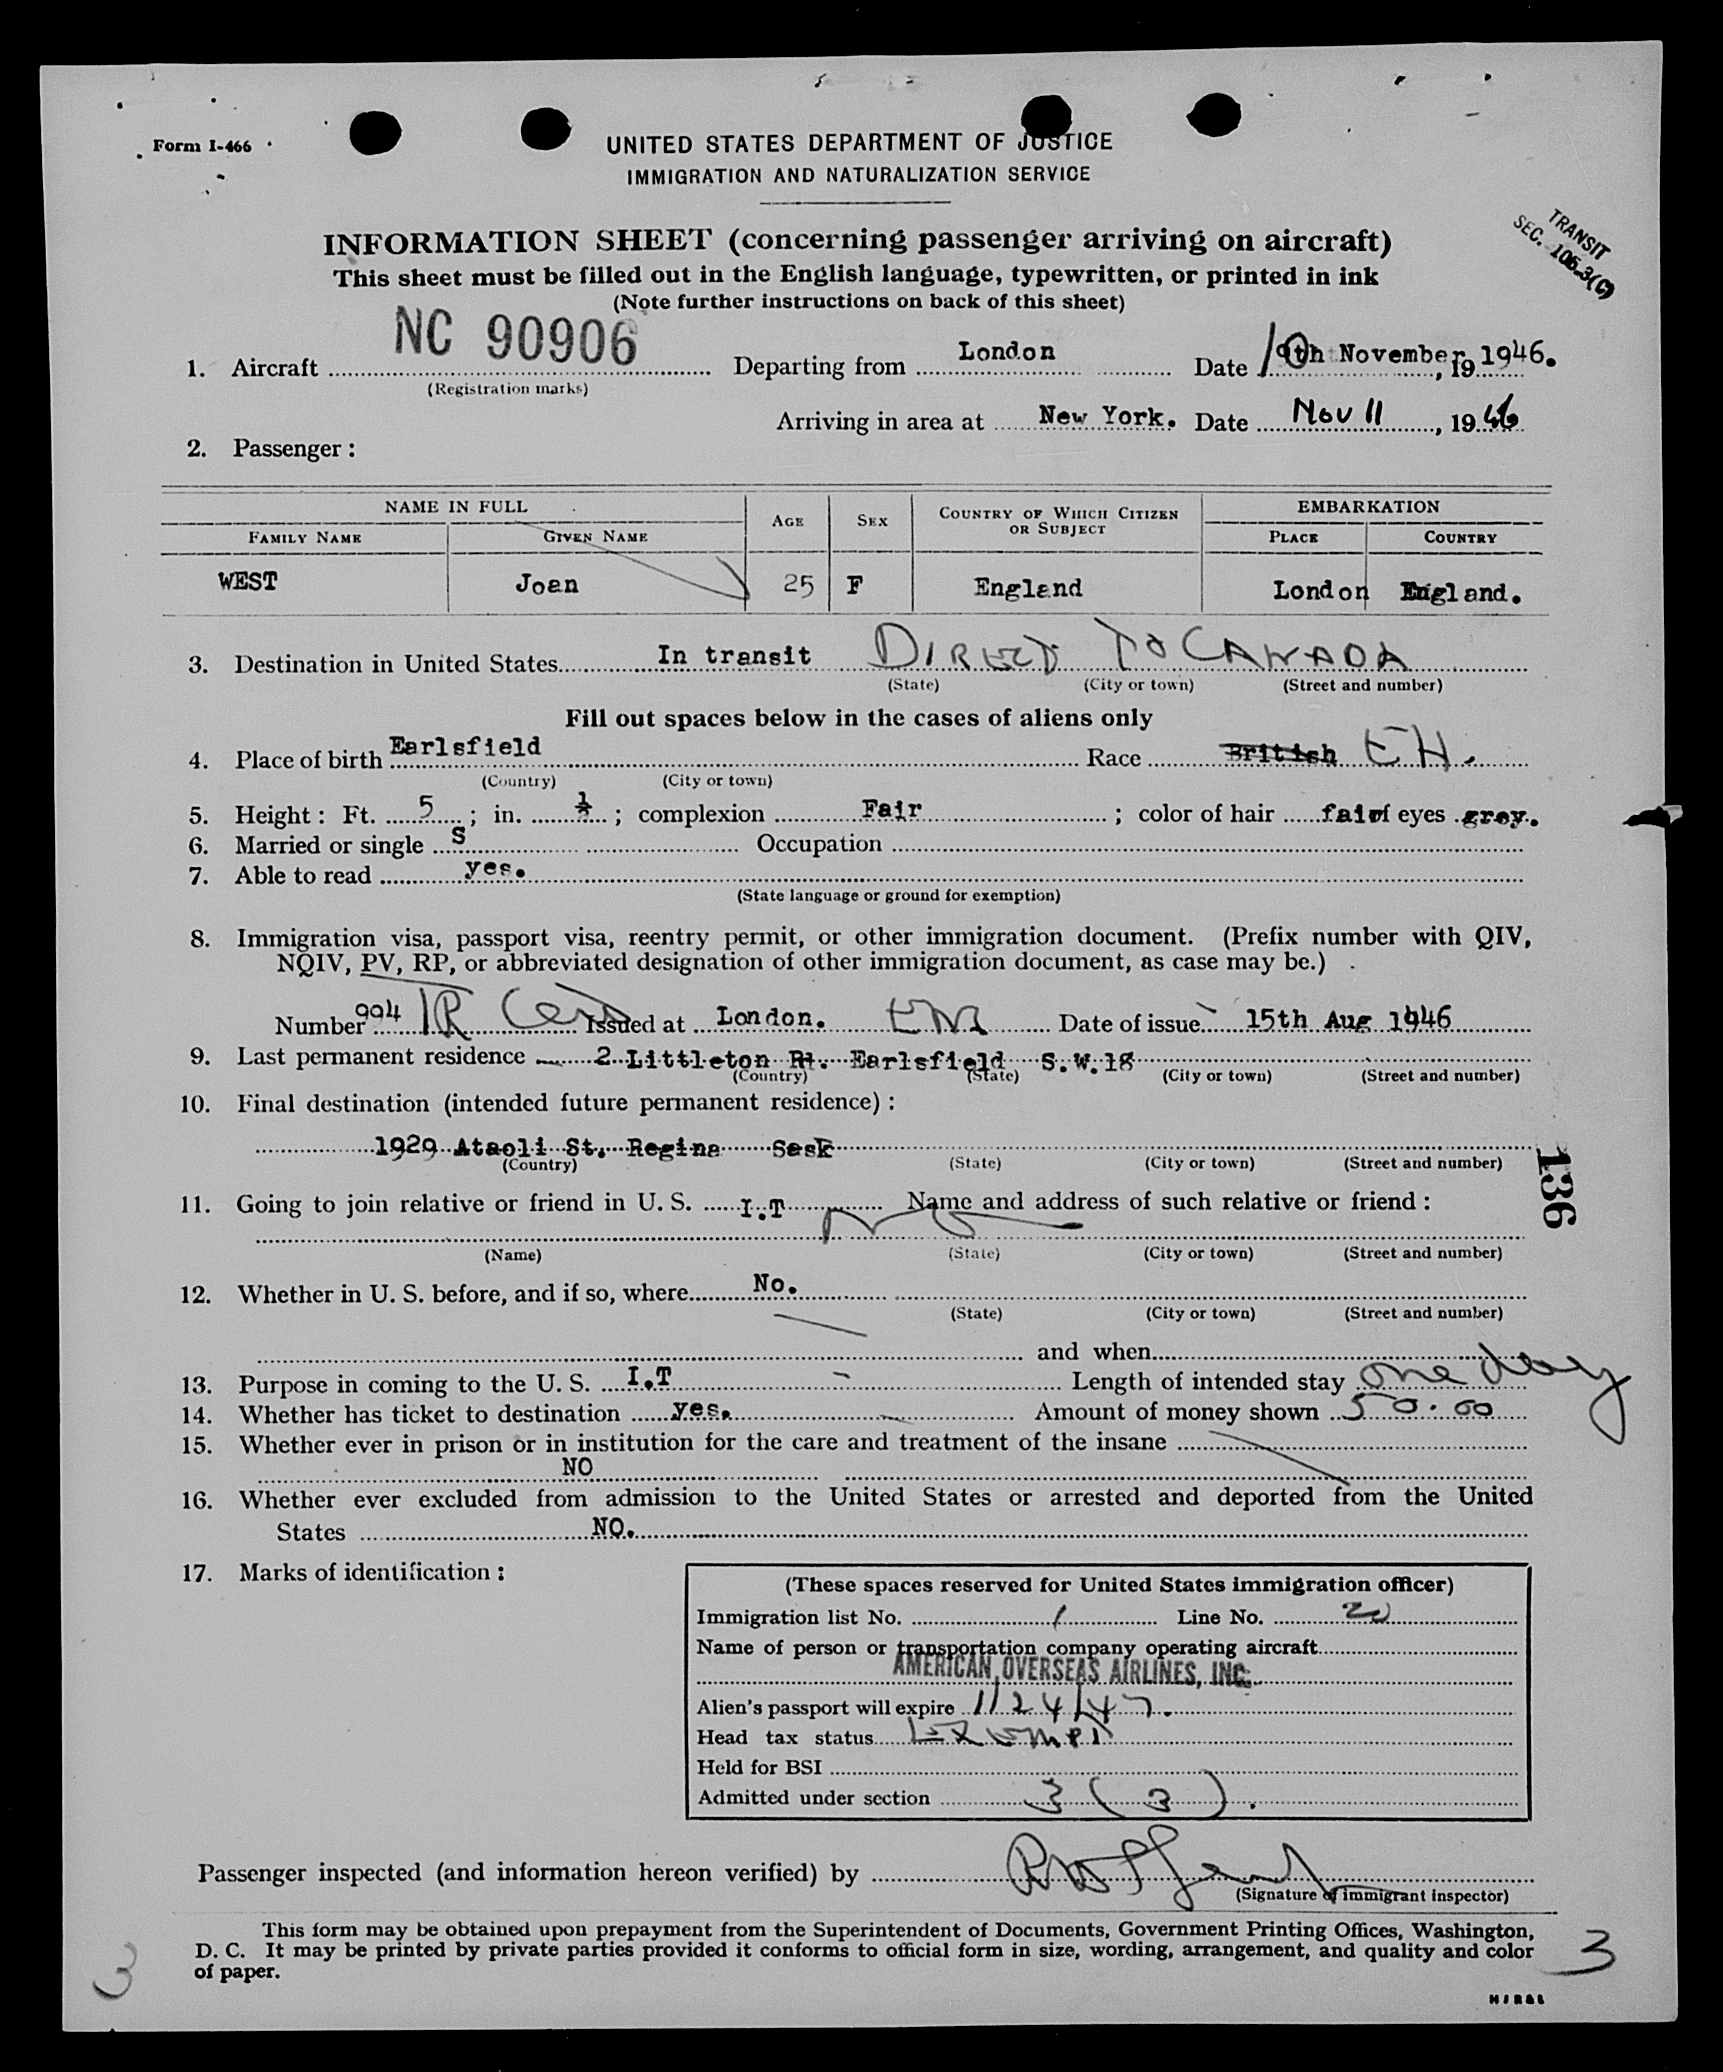 Form I-466
UNITED STATES DEPARTMENT OF JUSTICE
IMMIGRATION AND NATURALIZATION SERVICE
TRANSIT
SEC. 106.3(C)
INFORMATION SHEET (concerning passenger arriving on aircraft)
This sheet must be filled out in the English language, typewritten, or printed in ink
(Note further instructions on back of this sheet)
1. Aircraft NC 90906 Departing from London Date 10th November, 19 1946.
(Registration marks)
Arriving in area at New York. Date Nov 11, 19 46
2. Passenger:
NAME IN FULL AGE SEX COUNTRY OF WHICH CITIZEN OR SUBJECT EMBARKATION
FAMILY NAME GIVEN NAME PLACE COUNTRY
WEST Joan 25 F England London England.
3. Destination in United States In transit DIRECT TO CANADA
(State) (City or town) (Street and number)
Fill out spaces below in the cases of aliens only
4. Place of birth Earlsfield Race British EH.
(Country) (City or town)
5. Height: Ft. 5; in. ½; complexion Fair; color of hair fair eyes grey.
6. Married or single S Occupation
7. Able to read yes.
(State language or ground for exemption)
8. Immigration visa, passport visa, reentry permit, or other immigration document. (Prefix number with QIV,
NQIV, PV, RP, or abbreviated designation of other immigration document, as case may be.)
Number 994 TR Cert Issued at London. Date of issue 15th Aug 1946
9. Last permanent residence 2 Littleton Rd. Earlsfield S.W.18
(Country) (State) (City or town) (Street and number)
10. Final destination (intended future permanent residence):
1929 Ataoli St. Regina Sask
(Country) (State) (City or town) (Street and number)
136
11. Going to join relative or friend in U. S. I.T Name and address of such relative or friend:
No
(Name) (State) (City or town) (Street and number)
12. Whether in U. S. before, and if so, where No.
(State) (City or town) (Street and number)
and when
13. Purpose in coming to the U. S. I.T Length of intended stay one day
14. Whether has ticket to destination yes. Amount of money shown 50.00
15. Whether ever in prison or in institution for the care and treatment of the insane
NO
16. Whether ever excluded from admission to the United States or arrested and deported from the United
States NO.
17. Marks of identification:
(These spaces reserved for United States immigration officer)
Immigration list No. 1 Line No.
Name of person or transportation company operating aircraft
AMERICAN OVERSEAS AIRLINES, INC.
Alien's passport will expire 1/24/47.
Head tax status EXEMPT
Held for BSI
Admitted under section 3 (3).
Passenger inspected (and information hereon verified) by
(Signature of immigrant inspector)
This form may be obtained upon prepayment from the Superintendent of Documents, Government Printing Offices, Washington,
D. C. It may be printed by private parties provided it conforms to official form in size, wording, arrangement, and quality and color
of paper.
3 3